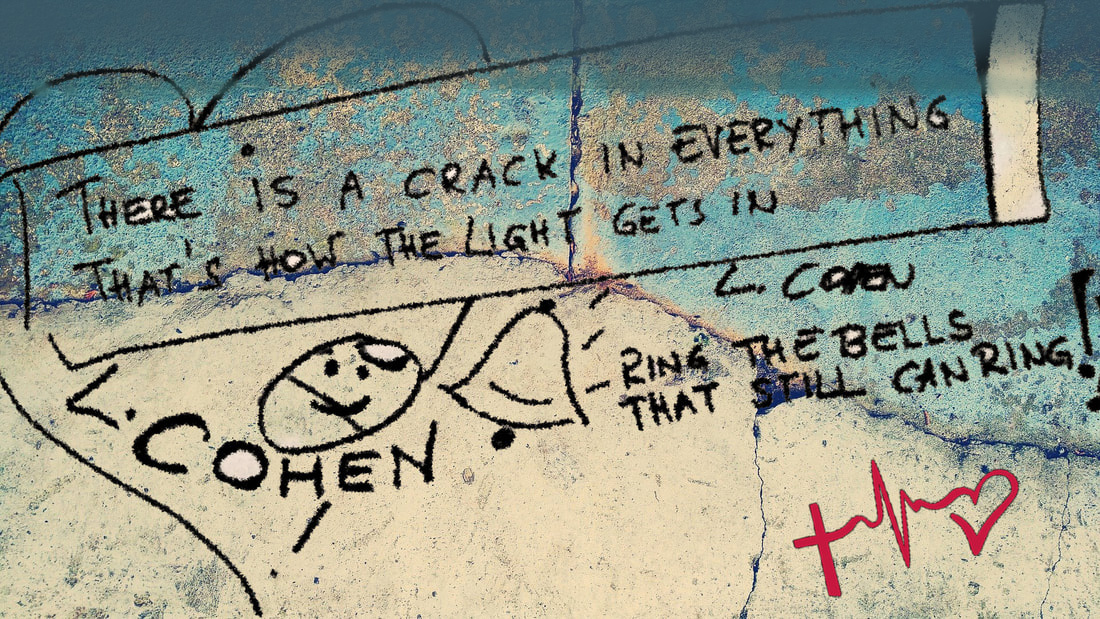 THERE IS A CRACK IN EVERYTHING
THAT'S HOW THE LIGHT GETS IN
L. COHEN
RING THE BELLS
THAT STILL CAN RING!
L. COHEN